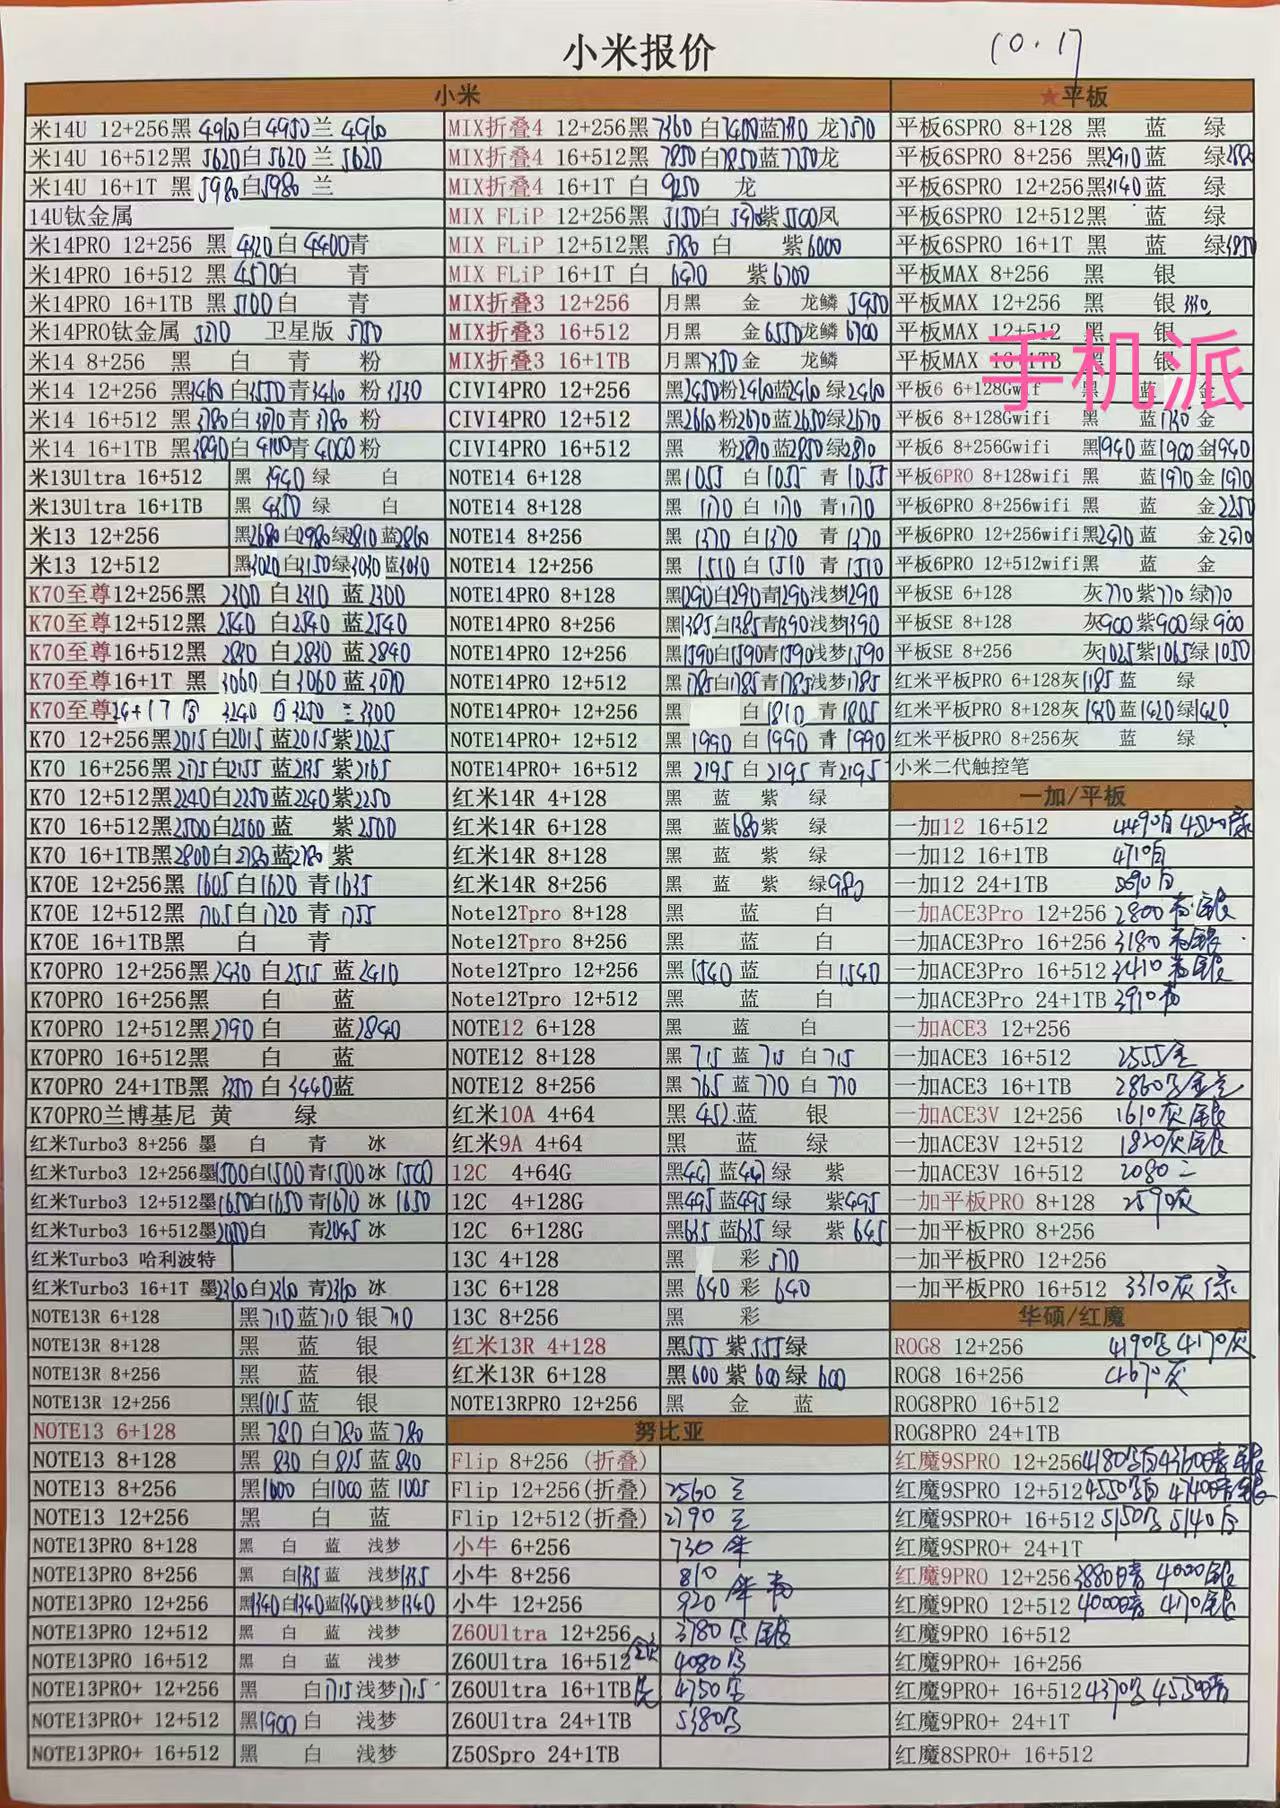 小米报价
10.17
小米
米14U 12+256黑 4960白4950兰 4960
米14U 16+512黑 5620白5620 兰 5620
米14U 16+1T 黑 5980白5980 兰
14U钛金属
米14PRO 12+256 黑 4320白 4400青
米14PRO 16+512 黑 4570白 青
米14PRO 16+1TB 黑 5100白 青
米14PRO钛金属 5270 卫星版
米14 8+256 黑 白 青 粉
米14 12+256 黑3460白3550青3460 粉 3530
米14 16+512 黑3780白3870青3780 粉
米14 16+1TB 黑3890白4100青4000粉
米13Ultra 16+512 黑 3940绿 白
米13Ultra 16+1TB 黑 4350 绿 白
米13 12+256 黑2680白2980绿2810蓝2860
米13 12+512 黑3020白3150绿3030蓝3030
K70至尊12+256黑 2300 白2310 蓝2300
K70至尊12+512黑 2540 白2540 蓝2540
K70至尊16+512黑 2830 白2830 蓝2840
K70至尊16+1T 黑 3060 白3060蓝3070
K70至尊24+1T 3240 白3250 3300
K70 12+256黑2015白2015蓝2015紫2025
K70 16+256黑 白2155蓝 紫2165
K70 12+512黑2240白2250蓝2240紫2250
K70 16+512黑2500白2560蓝 紫2500
K70 16+1TB黑2800白2780蓝2780紫
K70E 12+256黑 1605白1620 青1635
K70E 12+512黑 1705白1720 青1755
K70E 16+1TB黑 白 青
K70PRO 12+256黑2430 白2515 蓝2410
K70PRO 16+256黑 白 蓝
K70PRO 12+512黑2790 白 蓝2840
K70PRO 16+512黑 白 蓝
K70PRO 24+1TB黑 3350 白3440蓝
K70PRO兰博基尼 黄 绿
红米Turbo3 8+256 墨 白 青 冰
红米Turbo3 12+256墨1500白1500青1500冰 1500
红米Turbo3 12+512墨1650白1650青1670冰 1650
红米Turbo3 16+512墨 白 青2045冰
红米Turbo3 哈利波特
红米Turbo3 16+1T 墨2360白2360 青2360冰
NOTE13R 6+128 黑710蓝710银710
NOTE13R 8+128 黑 蓝 银
NOTE13R 8+256 黑 蓝 银
NOTE13R 12+256 黑1015蓝 银
NOTE13 6+128 黑 780 白780 蓝 780
NOTE13 8+128 黑 830 白 835 蓝 830
NOTE13 8+256 黑1000 白1000蓝 1005
NOTE13 12+256 黑 白 蓝
NOTE13PRO 8+128 黑 白 蓝 浅梦
NOTE13PRO 8+256 黑 白 蓝 浅梦
NOTE13PRO 12+256 黑1340白1340蓝1340浅梦1340
NOTE13PRO 12+512 黑 白 蓝 浅梦
NOTE13PRO 16+512 黑 白 蓝 浅梦
NOTE13PRO+ 12+256 黑 白1715浅梦1715
NOTE13PRO+ 12+512 黑1900白 浅梦
NOTE13PRO+ 16+512 黑 白 浅梦
MIX折叠4 12+256黑 7360 白7400蓝 龙
MIX折叠4 16+512黑 7850白7850蓝7750龙
MIX折叠4 16+1T 白 9250 龙
MIX FLiP 12+256黑 5150白 紫5500凤
MIX FLiP 12+512黑 5780 白 紫6000
MIX FLiP 16+1T 白 6470 紫6700
MIX折叠3 12+256 月黑 金 龙鳞5950
MIX折叠3 16+512 月黑 金6550龙鳞6700
MIX折叠3 16+1TB 月黑7350金 龙鳞
CIVI4PRO 12+256 黑2450粉2460蓝2460绿2460
CIVI4PRO 12+512 黑2660粉2670蓝2650绿2670
CIVI4PRO 16+512 黑 粉2870蓝2850绿2870
NOTE14 6+128 黑1055 白1055 青1055
NOTE14 8+128 黑 1170 白 1170 青1170
NOTE14 8+256 黑 1370 白1370 青1370
NOTE14 12+256 黑 1510 白1510 青1510
NOTE14PRO 8+128 黑1290白1290青1290浅梦1290
NOTE14PRO 8+256 黑1385白1385青1390浅梦1390
NOTE14PRO 12+256 黑1590白1590青1590浅梦1590
NOTE14PRO 12+512 黑1785白1785青1785浅梦1785
NOTE14PRO+ 12+256 黑 白1810 青1805
NOTE14PRO+ 12+512 黑 1990 白1990 青1990
NOTE14PRO+ 16+512 黑 2195 白2195 青2195
红米14R 4+128 黑 蓝 紫 绿
红米14R 6+128 黑 蓝680紫 绿
红米14R 8+128 黑 蓝 紫 绿
红米14R 8+256 黑 蓝 紫 绿980
Note12Tpro 8+128 黑 蓝 白
Note12Tpro 8+256 黑 蓝 白
Note12Tpro 12+256 黑1540蓝 白1540
Note12Tpro 12+512 黑 蓝 白
NOTE12 6+128 黑 蓝 白
NOTE12 8+128 黑 715 蓝 715 白715
NOTE12 8+256 黑 765 蓝770 白 770
红米10A 4+64 黑 452蓝 银
红米9A 4+64 黑 蓝 绿
12C 4+64G 黑 蓝 绿 紫
12C 4+128G 黑495蓝495绿 紫495
12C 6+128G 黑635蓝635绿 紫645
13C 4+128 黑 彩 570
13C 6+128 黑 640 彩 640
13C 8+256 黑 彩
红米13R 4+128 黑555 紫555绿
红米13R 6+128 黑600紫600绿 600
NOTE13RPRO 12+256 黑 金 蓝
努比亚
Flip 8+256 (折叠)
Flip 12+256(折叠) 2560
Flip 12+512(折叠) 2790
小牛 6+256 730
小牛 8+256 810
小牛 12+256 920
Z60Ultra 12+256 3780 银
Z60Ultra 16+512 4080
Z60Ultra 16+1TB 4750
Z60Ultra 24+1TB 5380
Z50Spro 24+1TB
★平板
平板6SPRO 8+128 黑 蓝 绿
平板6SPRO 8+256 黑2910蓝 绿
平板6SPRO 12+256黑3140蓝 绿
平板6SPRO 12+512黑 蓝 绿
平板6SPRO 16+1T 黑 蓝 绿3850
平板MAX 8+256 黑 银
平板MAX 12+256 黑 银
平板MAX 12+512 黑 银
平板MAX 16+1TB 黑 银
手机派
平板6 6+128Gwifi 黑 蓝 金
平板6 8+128Gwifi 黑 蓝1730金
平板6 8+256Gwifi 黑1940蓝1900金1940
平板6PRO 8+128wifi 黑 蓝1970金1970
平板6PRO 8+256wifi 黑 蓝 金2250
平板6PRO 12+256wifi黑2470蓝 金2470
平板6PRO 12+512wifi黑 蓝 金
平板SE 6+128 灰770紫770绿770
平板SE 8+128 灰900紫900绿900
平板SE 8+256 灰1025紫1065绿1050
红米平板PRO 6+128灰1185蓝 绿
红米平板PRO 8+128灰1420蓝1420绿1420
红米平板PRO 8+256灰 蓝 绿
小米二代触控笔
一加/平板
一加12 16+512 4490白
一加12 16+1TB 4710白
一加12 24+1TB 白
一加ACE3Pro 12+256 2800 银
一加ACE3Pro 16+256 3180 银
一加ACE3Pro 16+512 3410 银
一加ACE3Pro 24+1TB 3910
一加ACE3 12+256
一加ACE3 16+512 2555金
一加ACE3 16+1TB 2860
一加ACE3V 12+256 1610灰银
一加ACE3V 12+512 1820灰银
一加ACE3V 16+512 2080
一加平板PRO 8+128 2590灰
一加平板PRO 8+256
一加平板PRO 12+256
一加平板PRO 16+512 3310灰绿
华硕/红魔
ROG8 12+256 4190 4170灰
ROG8 16+256 4670灰
ROG8PRO 16+512
ROG8PRO 24+1TB
红魔9SPRO 12+256 4180 4360 银
红魔9SPRO 12+512 4550 4740 银
红魔9SPRO+ 16+512 5150 5140
红魔9SPRO+ 24+1T
红魔9PRO 12+256 3880 4000银
红魔9PRO 12+512 4000 4170银
红魔9PRO 16+512
红魔9PRO+ 16+256
红魔9PRO+ 16+512 4370 4550
红魔9PRO+ 24+1T
红魔8SPRO+ 16+512